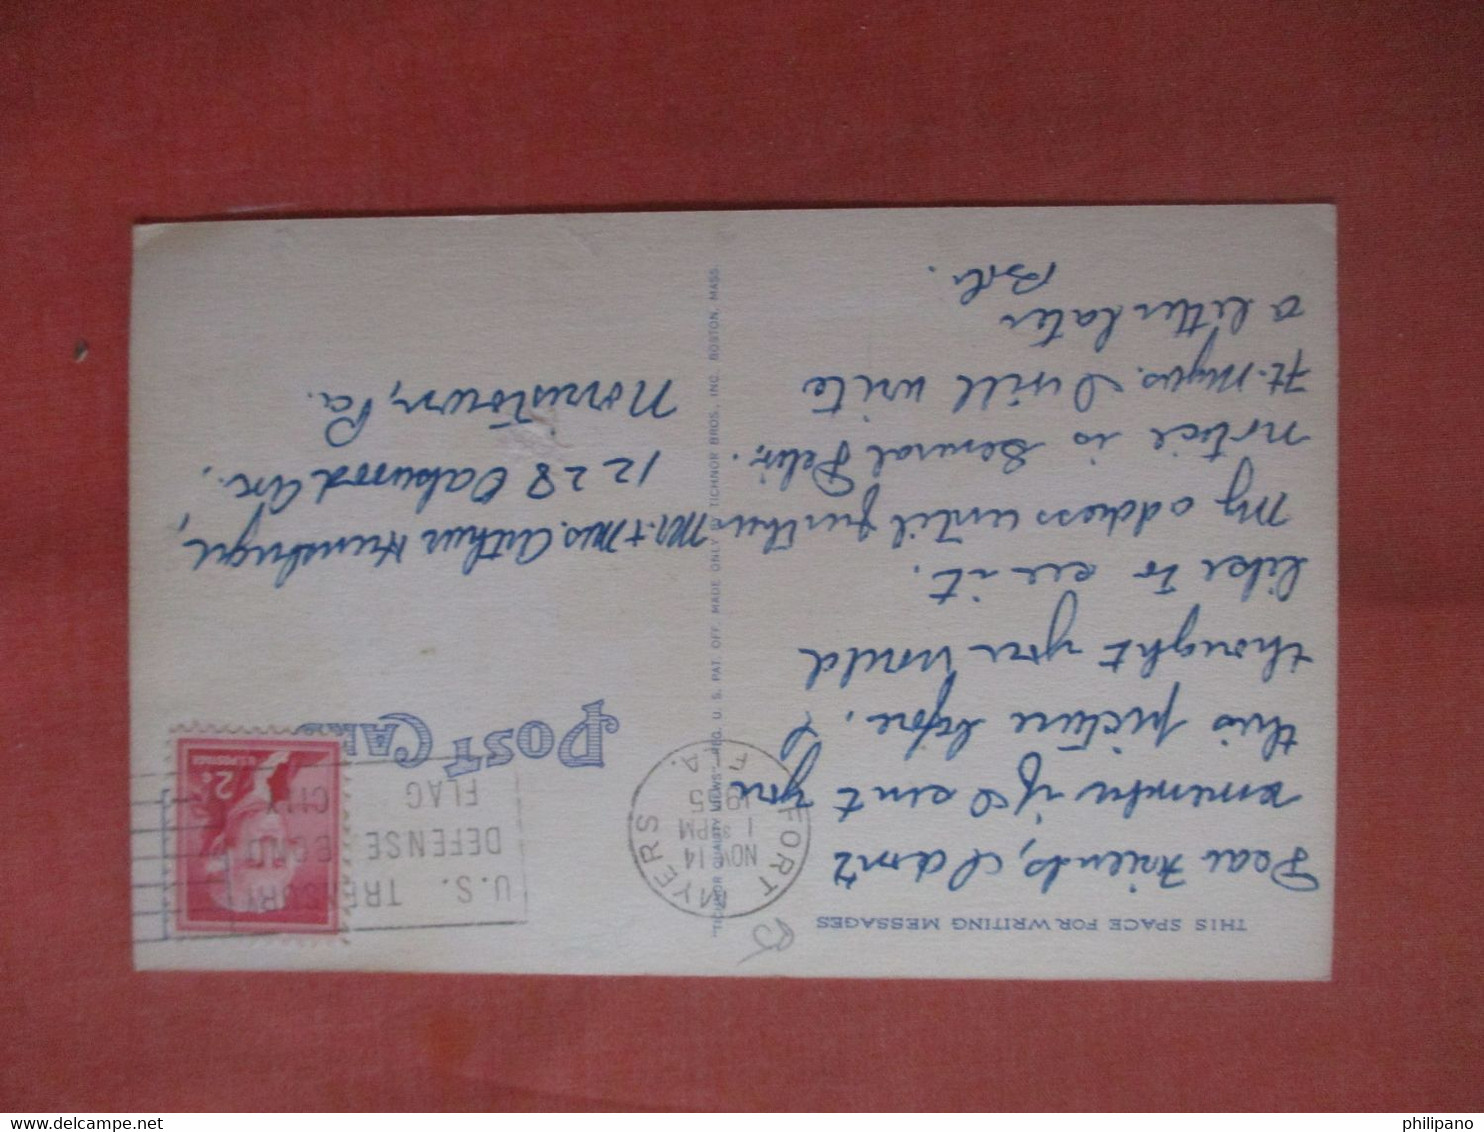 THIS SPACE FOR WRITING MESSAGES
Dear Friends, I can't
remember if I sent you
this picture before. I
thought you would
like to see it.
My address until further
notice is General Deliv.
Ft. Myers. I will write
a letter later
Bob.
"TICHNOR QUALITY VIEWS," REG. U. S. PAT. OFF. MADE ONLY BY TICHNOR BROS., INC. BOSTON, MASS.
FORT MYERS
FLA.
NOV 14
PM
U.S. TREASURY
DEFENSE BOND
FLAG CITY
U.S. POSTAGE
2¢
POST CARD
Mr. + Mrs. Arthur
1228 Oakwood Ave.,
Norristown, Pa.
philipano